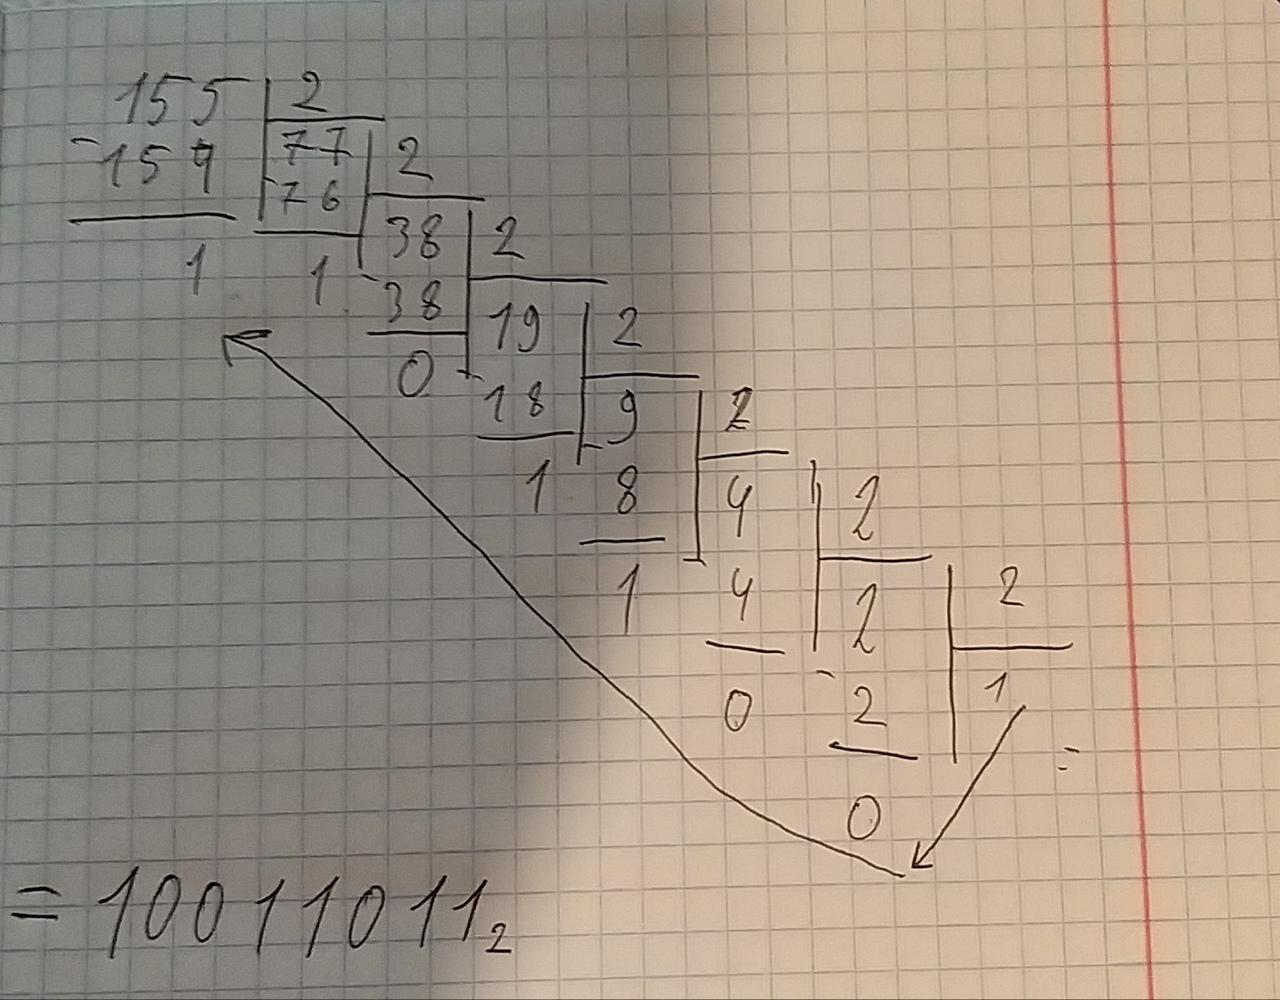 155 2
-154 77 2
1 -76 38 2
1 -38 19 2
0 -18 9 2
1 -8 4 2
1 4 2 2
0 -2 1 =
0
= 10011011₂